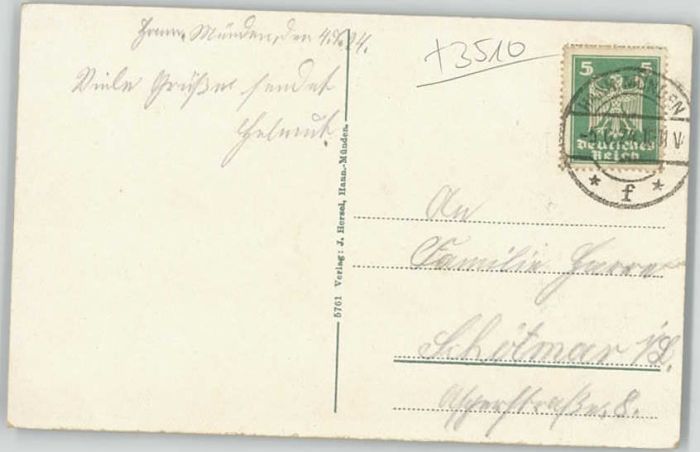 Hann. Münden, den 4.7.24.
Viele Grüße sendet
Helmut.
+3510
5 5
Deutsches
Reich
HANN. MÜNDEN
* f *
5761 Verlag: J. Hersel, Hann.-Münden.
An
Familie
Schötmar i/L.
8.